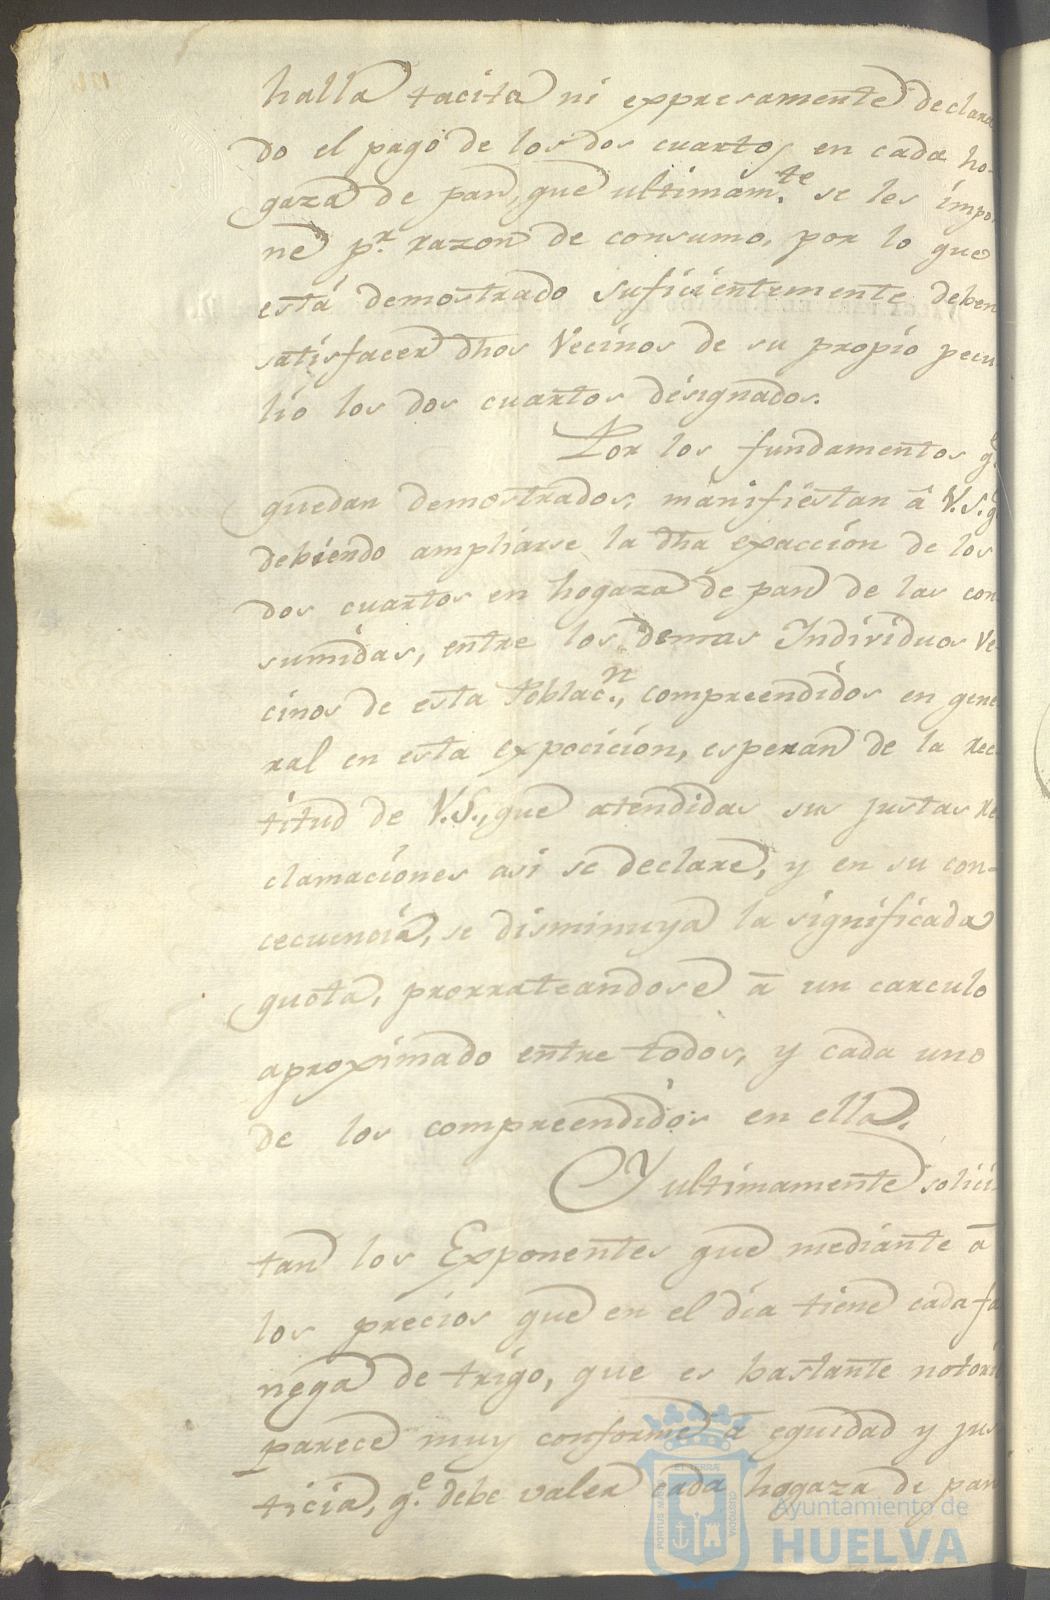 halla tacita ni expresamente declara
do el pago de los dos cuartos en cada ho-
gaza de pan, que ultimam.te se les impo
ne p.r razon de consumo, por lo que
está demostrado suficientemente deben
satisfacer dhos Vecinos de su propio pecu
lio los dos cuartos designados.
Por los fundamentos q.e
quedan demostrados, manifiestan â V.S. q.e
debiendo ampliarse la dha exaccion de los
dos cuartos en hogaza de pan de las con
sumidas, entre los demas Individuos Ve-
cinos de esta Poblac.n, compreendidos en gene
ral en esta exposicion, esperan de la rec
titud de V.S., que atendidas sus justas re
clamaciones asi se declare, y en su con-
cecuencia, se disminuya la significada
quota, prorrateandose â un carculo
aproximado entre todos, y cada uno
de los compreendidos en ella.
Y ultimamente solici
tan los Exponentes que mediante â
los precios que en el dia tiene cada fa
nega de trigo, que es bastante notori
parece muy conforme â equidad y jus
ticia, q.e debe valer cada hogaza de pan
Ayuntamiento de
HUELVA
PORTUS MARIS
ET TERRÆ
CUSTODIA